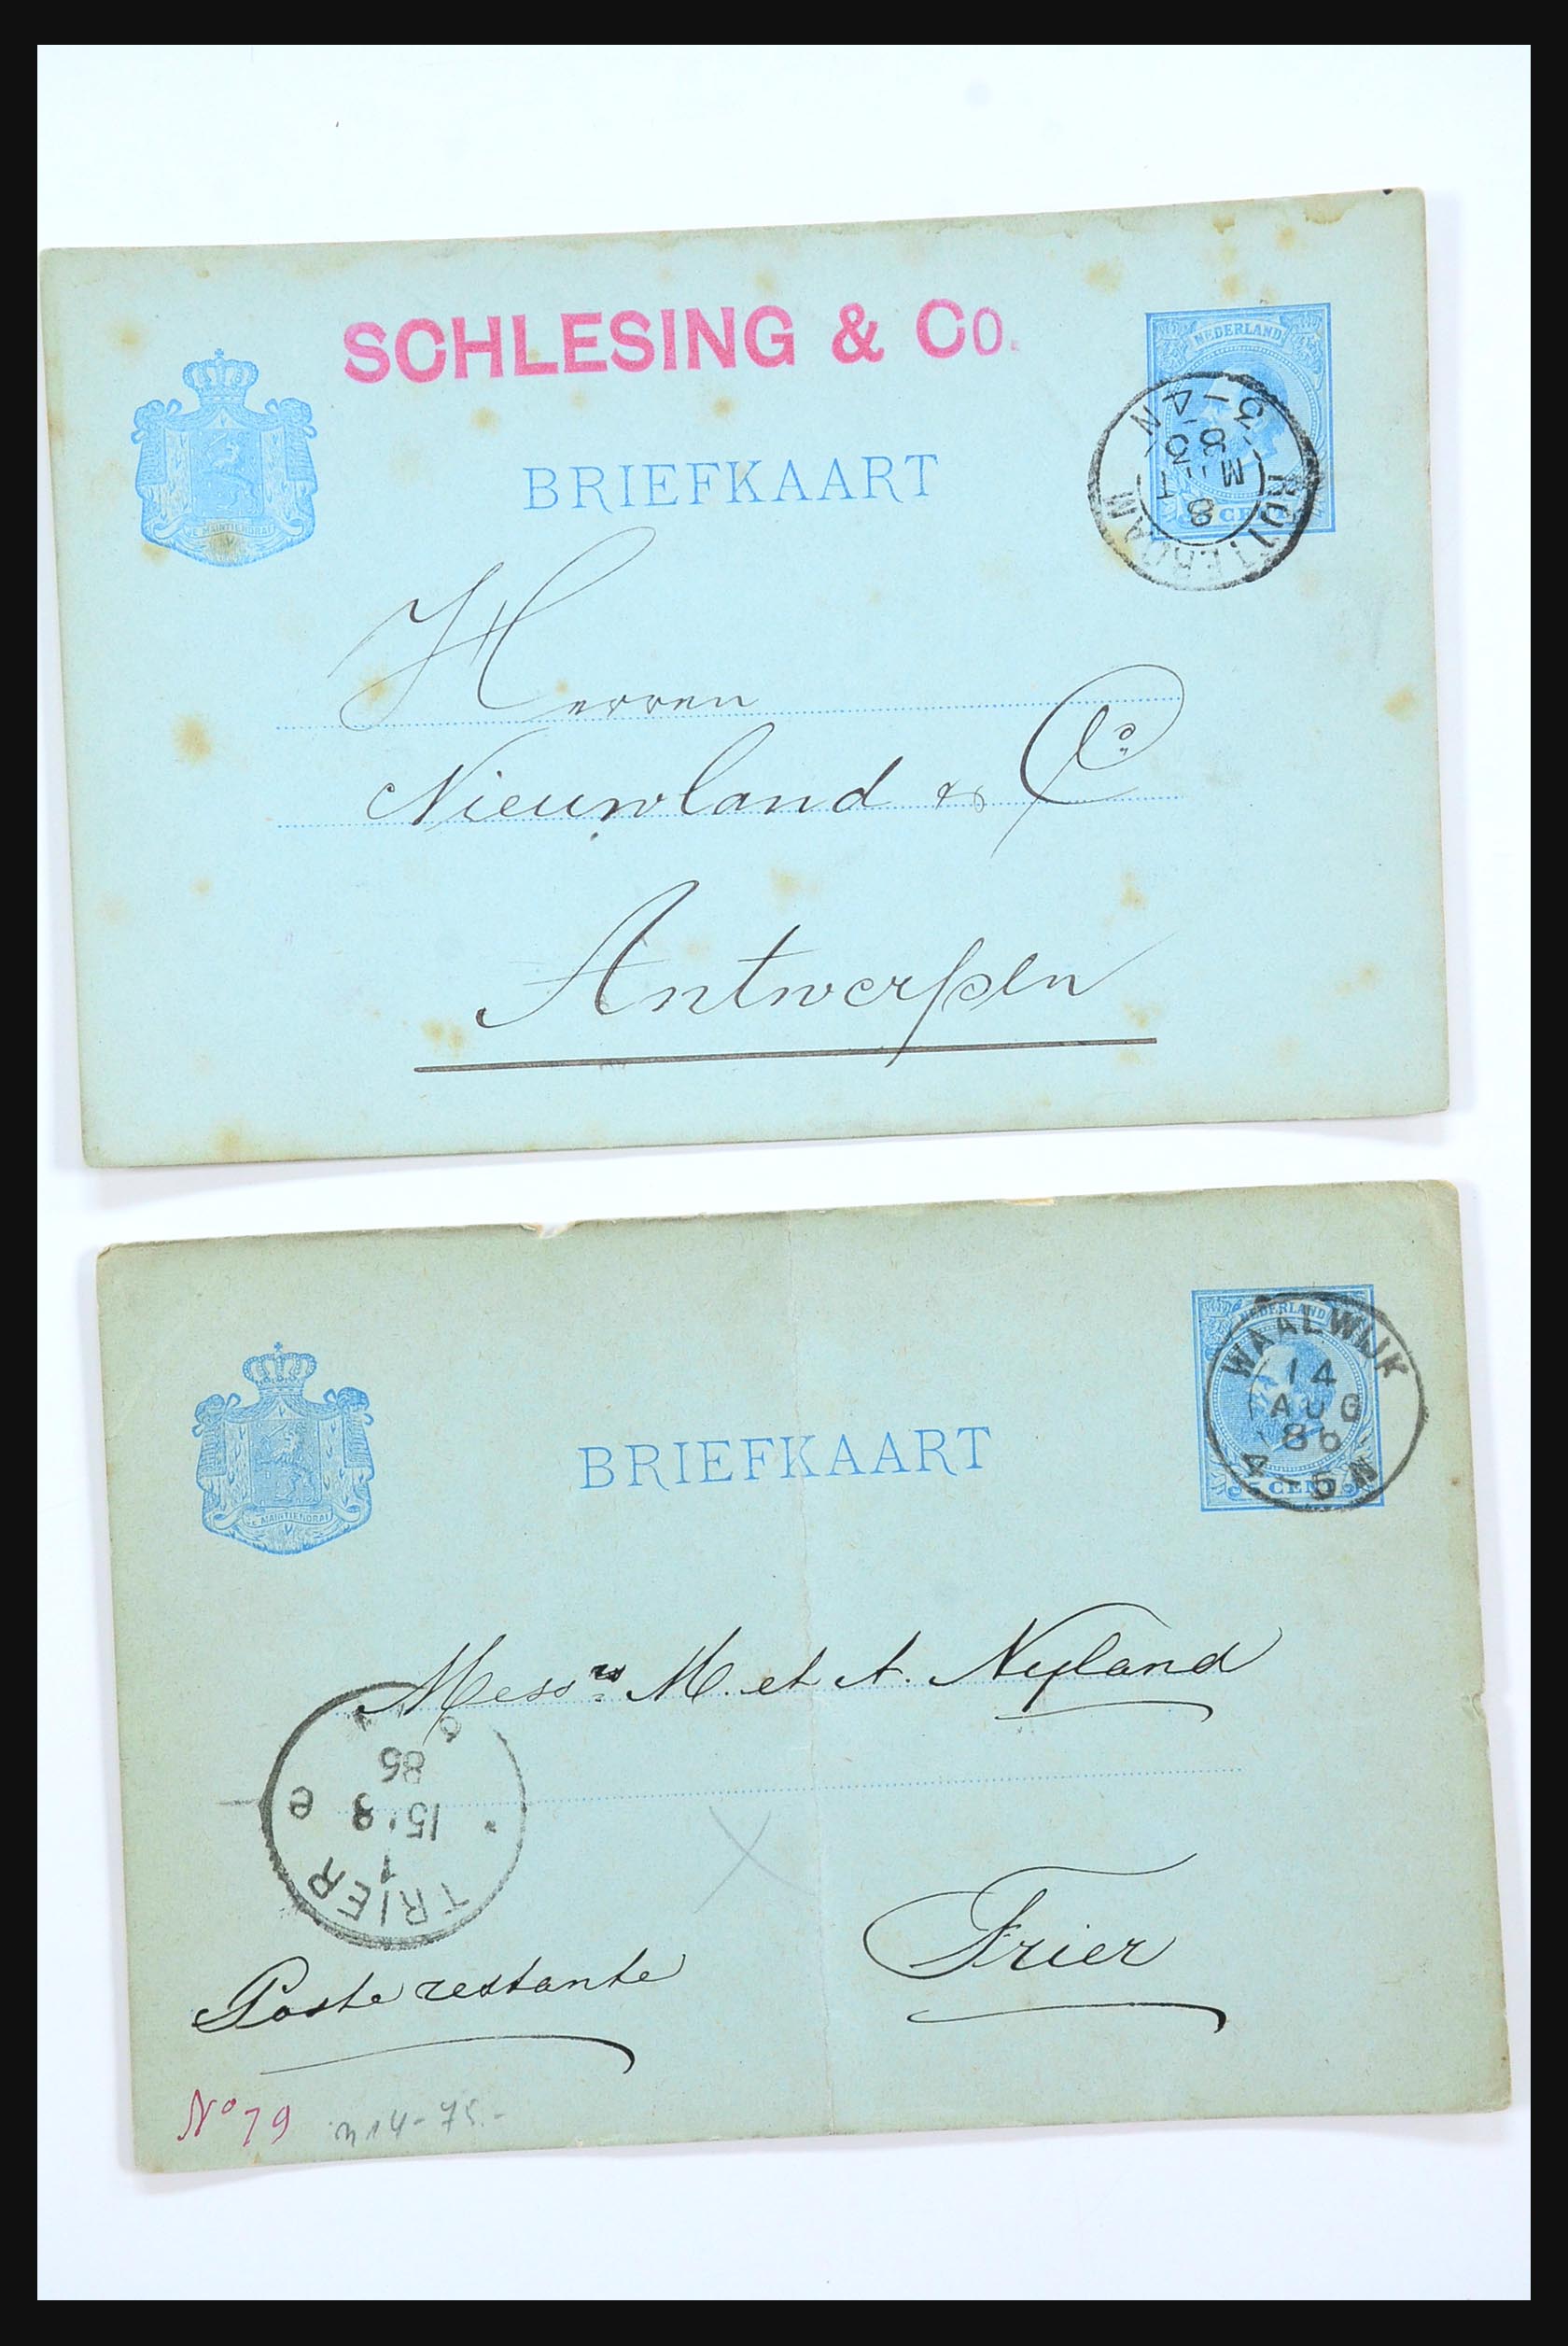 SCHLESING & Co.
NEDERLAND
CENT
JE MAINTIENDRAI
BRIEFKAART
ROTTERDAM
8
MRT
83
3-4N
Herren
Nieuwland & Co
Antwerpen
NEDERLAND
5 CENT
WAALWIJK
14
AUG
86
4-5N
JE MAINTIENDRAI
BRIEFKAART
Messrs M. et A. Nyland
TRIER
1
15 8
86
e
Trier
Poste restante
No 79